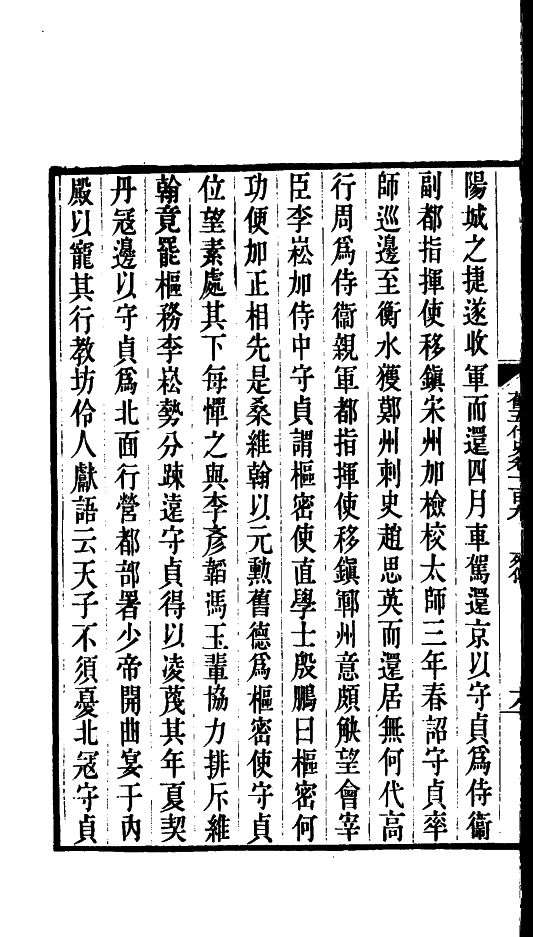 陽城之捷遂收軍而還四月車駕還京以守貞爲侍衞
副都指揮使移鎭宋州加檢校太師三年春詔守貞率
師巡邊至衡水獲鄭州刺史趙思英而還居無何代高
行周爲侍衞親軍都指揮使移鎭鄆州意頗觖望會宰
臣李崧加侍中守貞謂樞密使直學士殷鵬曰樞密何
功便加正相先是桑維翰以元勳舊德爲樞密使守貞
位望素處其下每憚之與李彥韜馮玉輩協力排斥維
翰竟罷樞務李崧勢分踈遠守貞得以凌蔑其年夏契
丹寇邊以守貞爲北面行營都部署少帝開曲宴于內
殿以寵其行教坊伶人獻語云天子不須憂北寇守貞